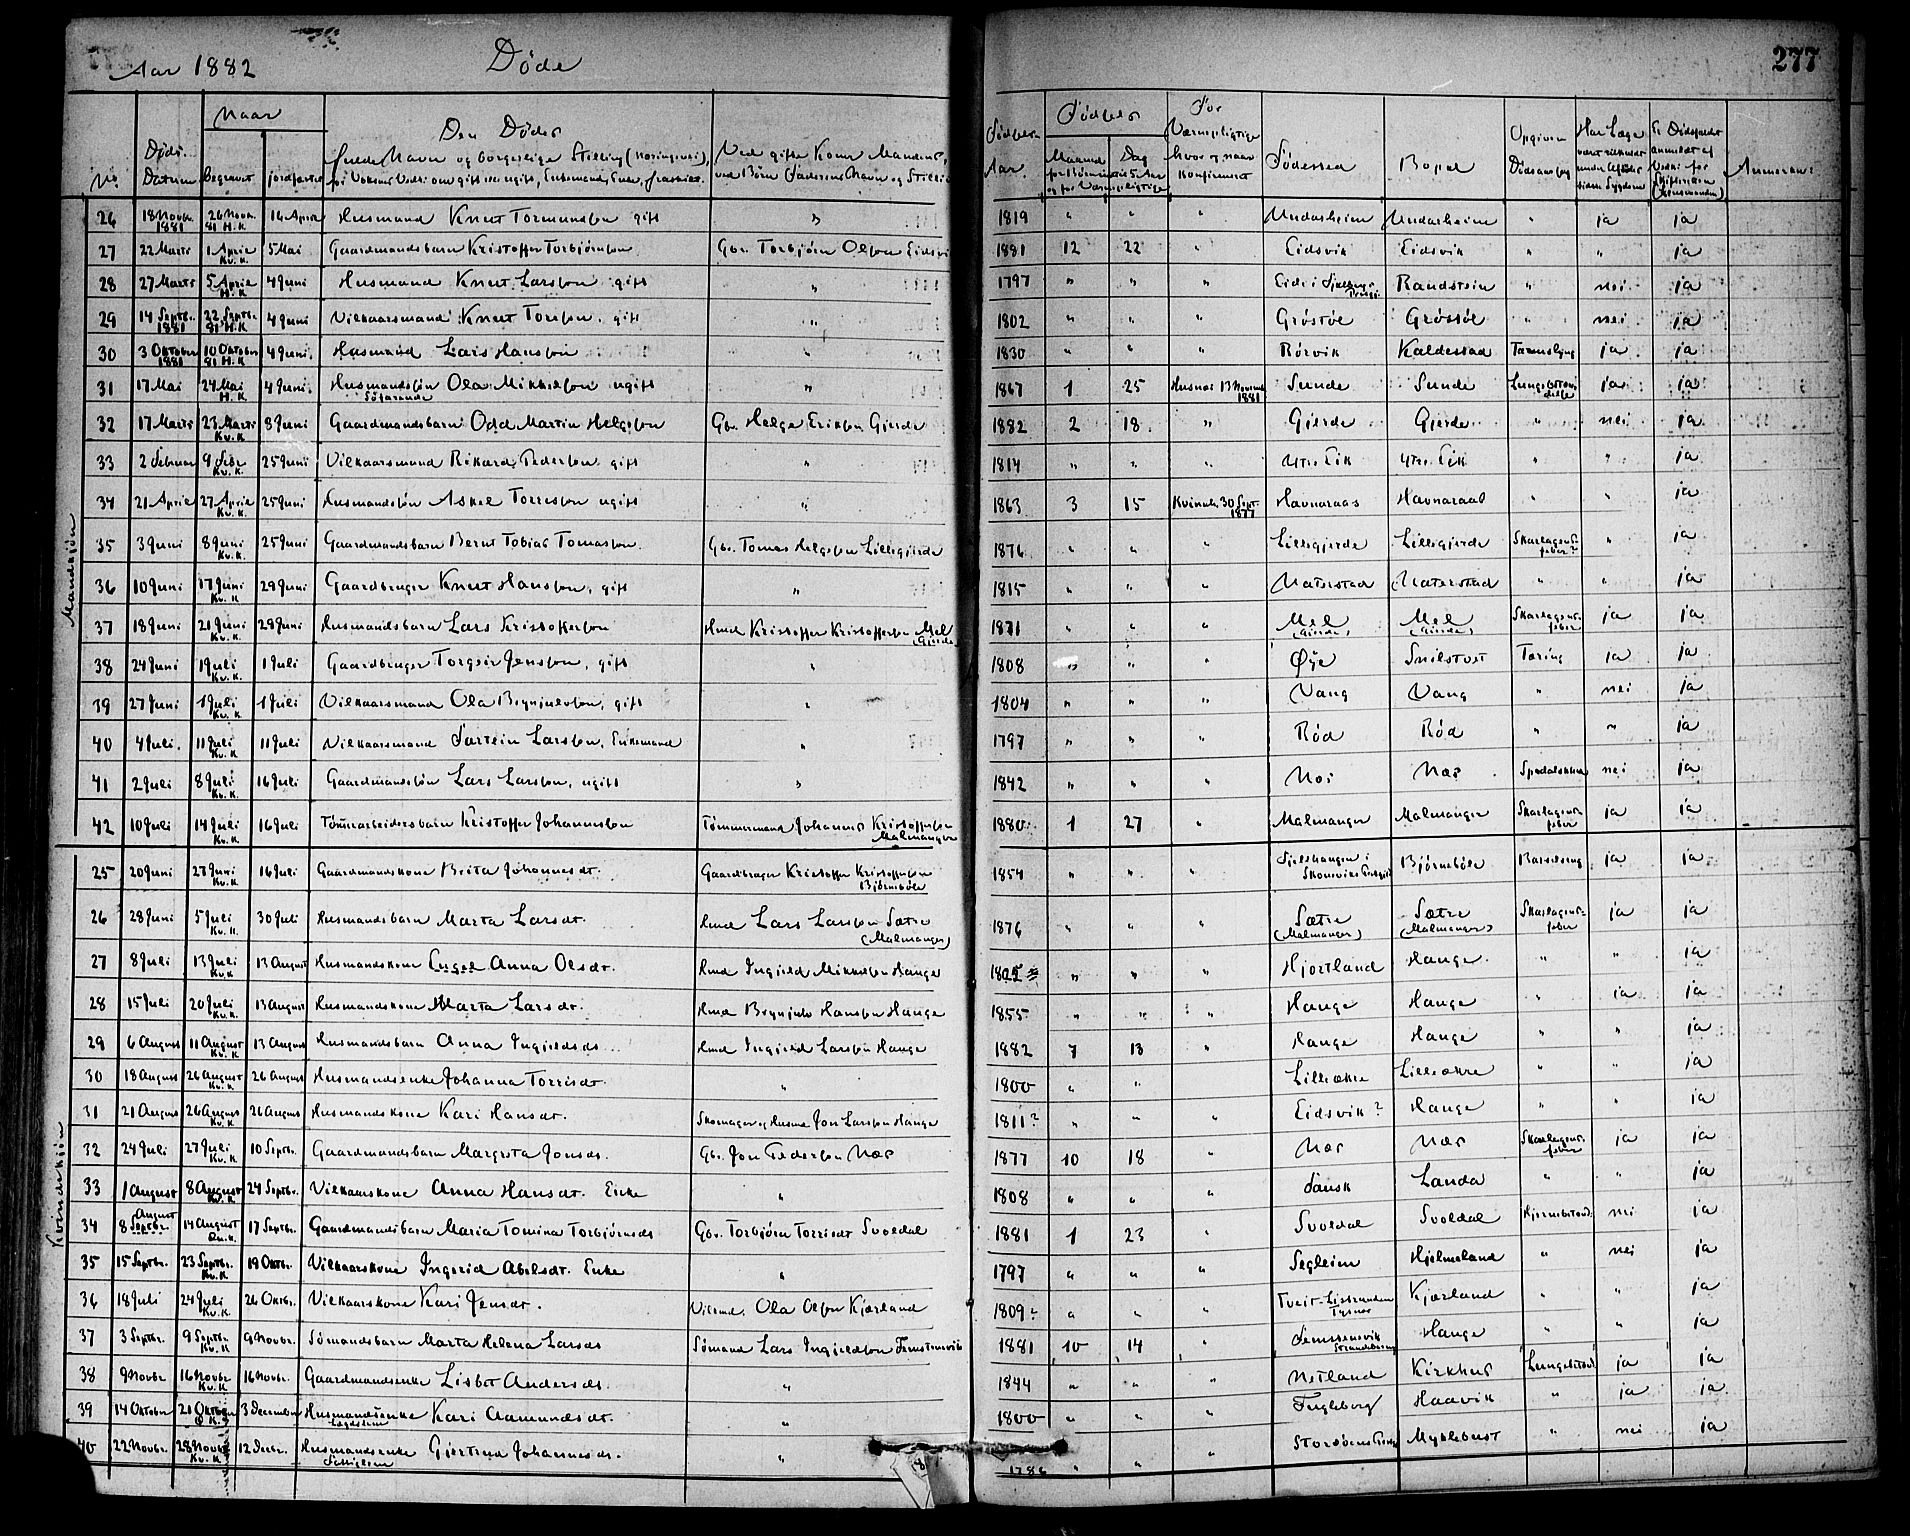 Aar 1882 Døde 277
Naar Den Dødes Fødsels For
No. Døds Datum begravet jordfæstet Fulde Navn og borgerlige Stilling Ved gifte Koner Mandens, ved Børn Faderens Navn og Stilling Fødsels Aar Maaned Dag Værnepligtige hvor og naar Konfirmeret Fødested Bopæl Opgiven Dødsaarsag
Mandkjøn
26 18 Novbr. 1881 26 Novbr. 81 H.K. 16 April Husmand Knut Tormundsøn gift " 1819 " " " Undarheim Undarheim " ja ja
27 22 Marts 1 April Kv.K. 5 Mai Gaardmandsbarn Kristoffer Torbjørnsøn Gbr. Torbjørn Olsøn Eidsvik 1881 12 22 " Eidsvik Eidsvik " " ja
28 27 Marts 5 April H.K. 4 Juni Husmand Knut Larssøn gift " 1797 " " " Eide i Randstein " nei ja
29 14 Septbr. 1881 22 Septbr. 81 H.K. 4 Juni Vilkaarsmand Knut Torssøn, gift " 1802 " " " Grøstøl Grøstøl " nei ja
30 3 Oktober 1881 10 Oktober 81 H.K. 4 Juni Husmand Lars Hanssøn " 1830 " " " Rørvik Kaldestad ja ja
31 17 Mai 24 Mai H.K. 4 Juni Husmandssøn Ola Mikkelsøn ugift Søfarende " 1867 1 25 Husnes 13 Novemb. 1881 Sunde Sunde Lungebetændelse ja ja
32 17 Marts 23 Marts Kv.K. 8 Juni Gaardmandsbarn Odd Martin Helgesøn Gbr. Helge Eriksøn Gjerde 1882 2 18 " Gjerde Gjerde " nei ja
33 2 Februar 9 Febr. Kv.K. 25 Juni Vilkaarsmand Rikard Pedersøn gift " 1814 " " " Ytre Eik Ytre Eik " " ja
34 21 April 27 April Kv.K. 25 Juni Husmandssøn Askel Torressøn ugift " 1863 3 15 Kvinnh. 30 Sept. 1877 Havnaraas Havnaraas " " ja
35 3 Juni 8 Juni Kv.K. 25 Juni Gaardmandsbarn Bernt Tobias Tomassøn Gbr. Tomas Helgesøn Lillegjerde 1876 " " " Lillegjerde Lillegjerde Skarlagensfeber? " ja
36 10 Juni 17 Juni Kv.K. 29 Juni Gaardbruger Knut Hanssøn, gift " 1815 " " " Naterstad Naterstad " " ja
37 18 Juni 21 Juni Kv.K. 29 Juni Husmandsbarn Lars Kristoffersøn Hmd Kristoffer Kristoffersøn Mel (Gjerde) 1871 " " " Mel (Gjerde) Mel (Gjerde) Skarlagensfeber ja ja
38 24 Juni 1 Juli Kv.K. 1 Juli Gaardbruger Torgeir Jenssøn, gift " 1808 " " " Øye Snilstvet Tæring ja ja
39 27 Juni 1 Juli Kv.K. 1 Juli Vilkaarsmand Ola Brynjulvsøn, gift " 1804 " " " Vang Vang " nei ja
40 4 Juli 11 Juli Kv.K. 11 Juli Vilkaarsmand Larssøn, Enkemand " 1797 " " " Rød Rød " " ja
41 2 Juli 8 Juli Kv.K. 16 Juli Gaardmandssøn Lars Larssøn, ugift " 1842 " " " Nes Næs Spedalskhed nei ja
42 10 Juli 14 Juli Kv.K. 16 Juli Tømmerarbeidersbarn Kristoffer Johannessøn Tømmermand Johannes Kristoffersøn Malmanger 1880 1 27 " Malmanger Malmanger Skarlagensfeber ja ja
Kvindekjøn
25 20 Juni 27 Juni Kv.K. 16 Juli Gaardmandskone Brita Johannesdt. Gaardbruger Kristoffer Kristoffersøn Bjørnebøle 1854 " " " Bjørnebøle Barselseng ja ja
26 28 Juni 5 Juli Kv.K. 30 Juli Husmandsbarn Marta Larsdt. Hmd Lars Larssøn Sætre (Malmanger) 1876 " " " Sætre (Malmanger) Sætre (Malmanger) Skarlagensfeber ja ja
27 8 Juli 13 Juli Kv.K. 13 August Husmandskone Anna Olsdt. Hmd Ingjeld Mikkelsøn Hauge " " " Hjortland Hauge " " ja
28 15 Juli 20 Juli Kv.K. 13 August Husmandskone Marta Larsdt. Hmd Brynjulv Hanssøn Hauge 1855 " " " Hauge Hauge " ja ja
29 6 August 11 August Kv.K. 13 August Husmandsbarn Anna Ingjeldsdt. Hmd Ingjeld Larssøn Hauge 1882 7 13 " Hauge Hauge " " ja
30 18 August 26 August Kv.K. 26 August Husmandsenke Johanna Torrisdt. " 1800 " " Lilleækre Lilleækre " " ja
31 21 August 26 August Kv.K. 26 August Husmandskone Kari Hansdt. Skomager og Husmd. Jon Larssøn Hauge 1811? " " " Eidsvik? Hauge " " ja
32 24 Juli 27 Juli Kv.K. 10 Septbr. Gaardmandsbarn Margreta Jonsdt. Gbr. Jon Pedersøn Næs 1877 10 18 " Næs Næs Skarlagensfeber ja ja
33 1 August 8 August Kv.K. 24 Septbr. Vilkaarskone Anna Hansdt. Enke " 1808 " " " Landa " " ja
34 8 August Septbr. 14 August 17 Septbr. Gaardmandsbarn Maria Tomina Torbjørnsdt Gbr. Torbjørn Torrisdt Svoldal 1881 1 23 " Svoldal Svoldal Hjernebetænd. nei ja
35 15 Septbr. 23 Septbr. Kv.K. 19 Oktbr. Vilkaarskone Ingerid Abelsdt. Enke " 1797 " " " Segleim Hjelmeland " nei ja
36 18 Juli 24 Juli Kv.K. 26 Oktbr. Vilkaarskone Kari Jensdt. Vilkmd. Ola Olsøn Kjærland 1809? " " " Tysnes Kjærland " " ja
37 3 Septbr. 9 Septbr. Kv.K. 9 Novbr. Sømandsbarn Marta Helena Larsdt Sømand Lars Ingjeldsøn 1881 10 14 " Strandebarm Hauge " " ja
38 9 Novbr 16 Novbr Kv.K. 16 Novbr. Gaardmandsenke Lisbet Andersdt. " 1844 " " " Netland Kirkhus Lungebetænd. ja ja
39 14 Oktober 21 Oktober 3 December Husmandsenke Kari Aamundsdt. " 1800 " " " Fugleberg Haavik " ja ja
40 22 Novbr. 28 Novbr. Kv.K. 12 Decbr. Husmandsenke Gjertrud Johannesdt. " 1786 " " " Myklebust " nei ja